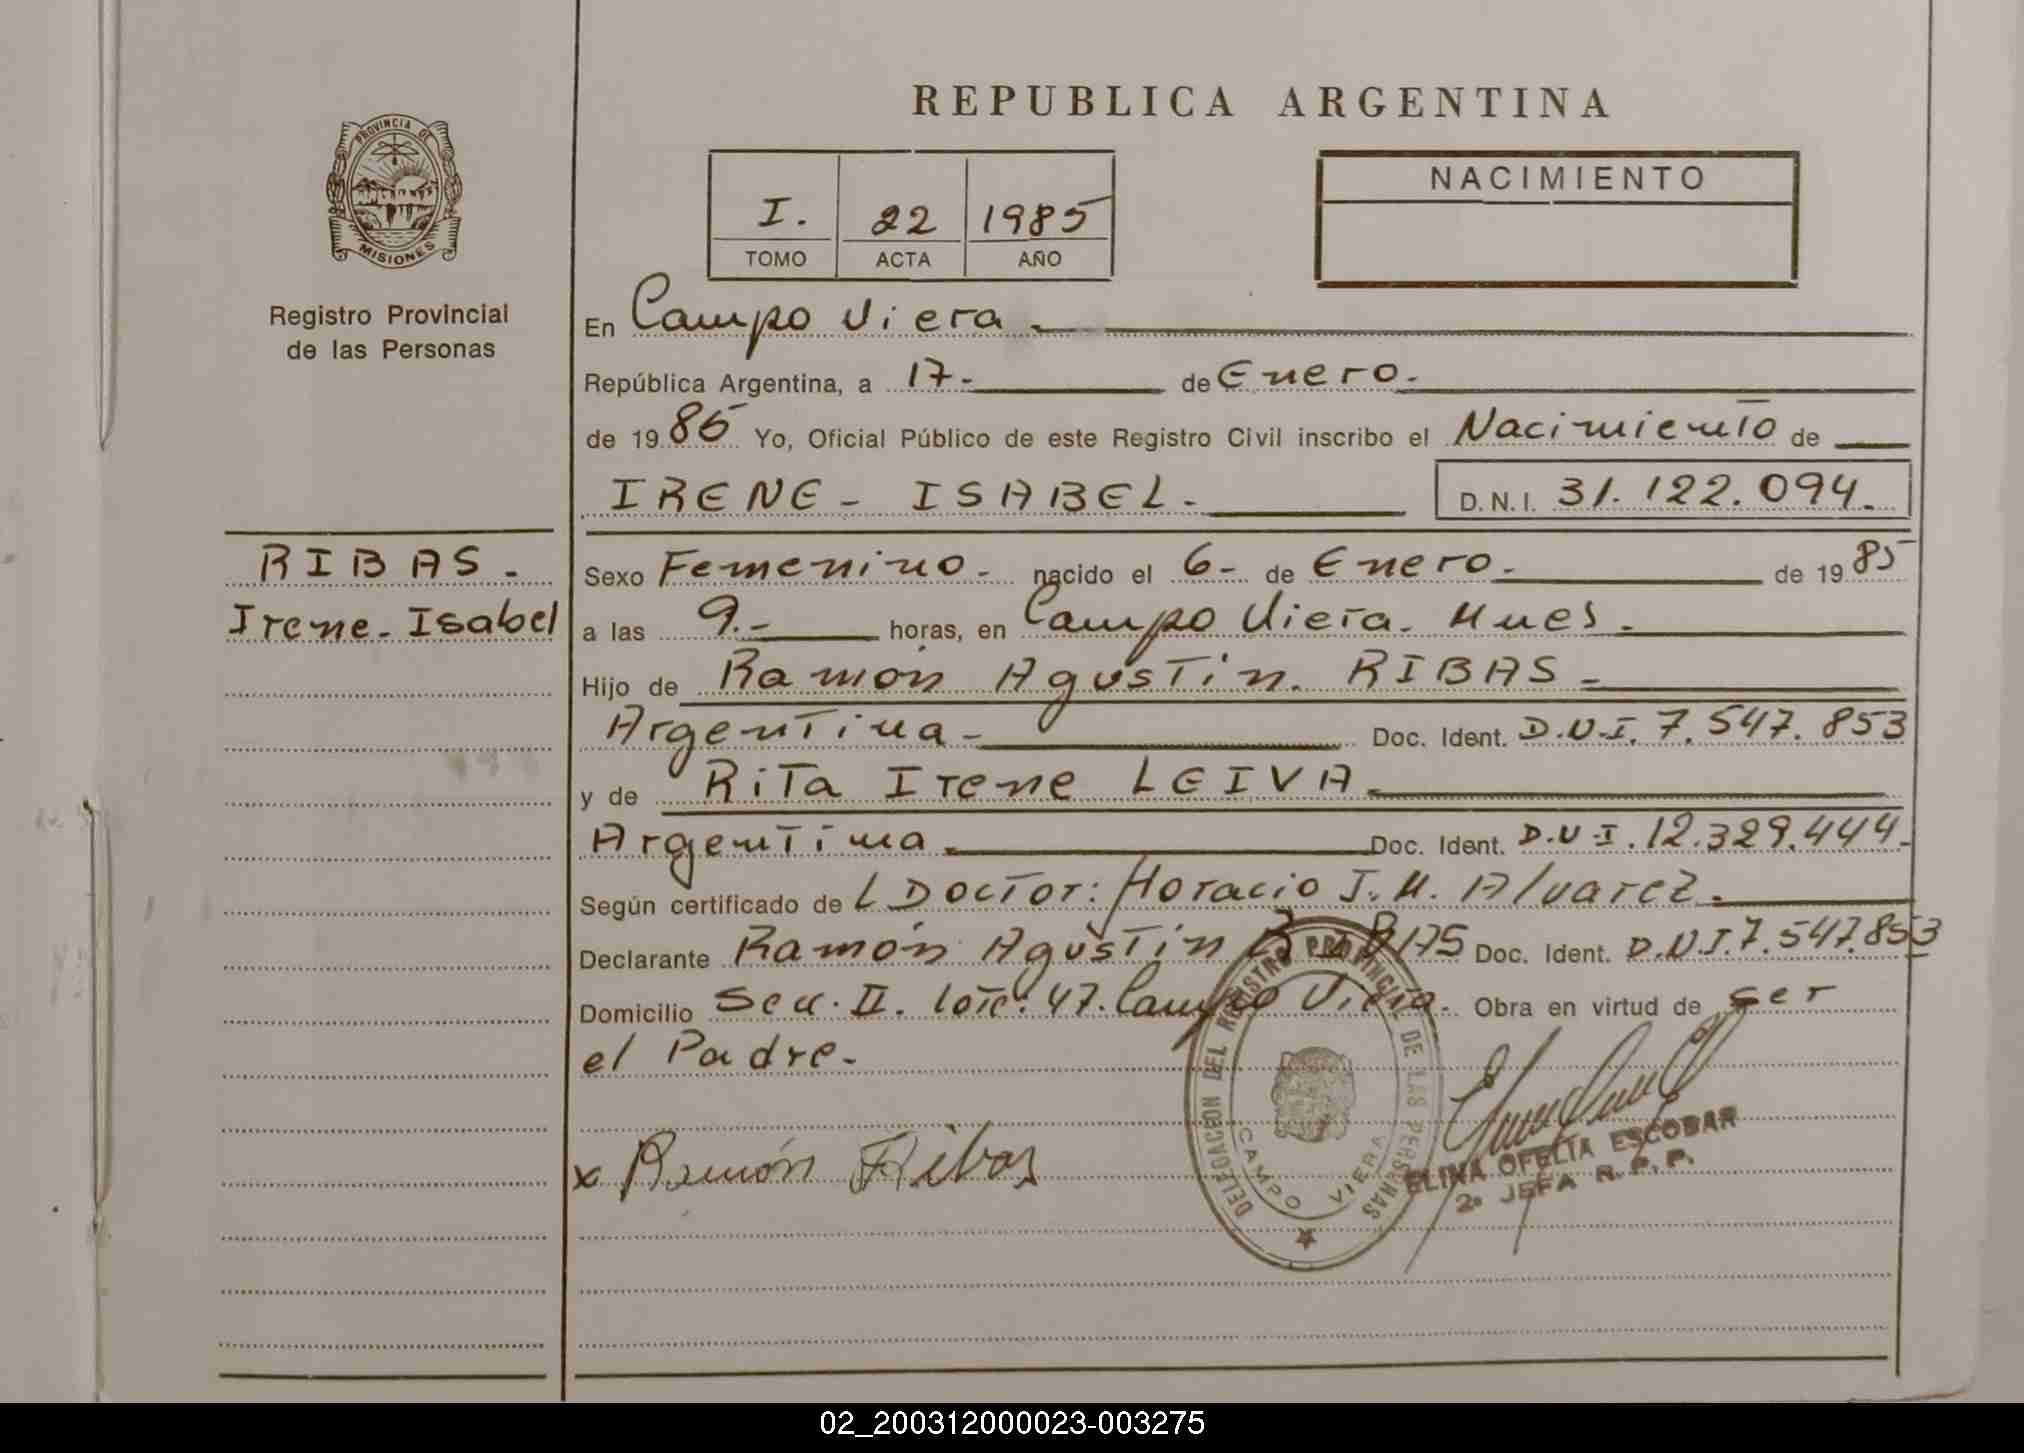 REPUBLICA ARGENTINA
PROVINCIA DE
MISIONES
Registro Provincial
de las Personas
NACIMIENTO
I. 22 1985
TOMO ACTA AÑO
En Campo Viera.
República Argentina, a 17- de Enero.
de 1985 Yo, Oficial Público de este Registro Civil inscribo el Nacimiento de
IRENE - ISABEL. D.N.I. 31.122.094.
RIBAS.
Irene-Isabel
Sexo Femenino- nacido el 6- de Enero. de 1985
a las 9.- horas, en Campo Viera. Mnes.
Hijo de Ramón Agustin. RIBAS -
Argentina- Doc. Ident. D.N.I. 7.547.853
y de Rita Irene LEIVA.
Argentina. Doc. Ident. D.N.I. 12.329.444.
Según certificado de L Doctor: Horacio J. M. Alvarez.
Declarante Ramón Agustin RIBAS Doc. Ident. D.N.I. 7.547.853
Domicilio Secc. II. lote: 47. Campo Viera. Obra en virtud de ser
el Padre.
x Ramón Ribas
DELEGACION DEL REGISTRO PROVINCIAL DE LAS PERSONAS
CAMPO VIERA
ELINA OFELIA ESCOBAR
2º JEFA R.P.P.
02_200312000023-003275